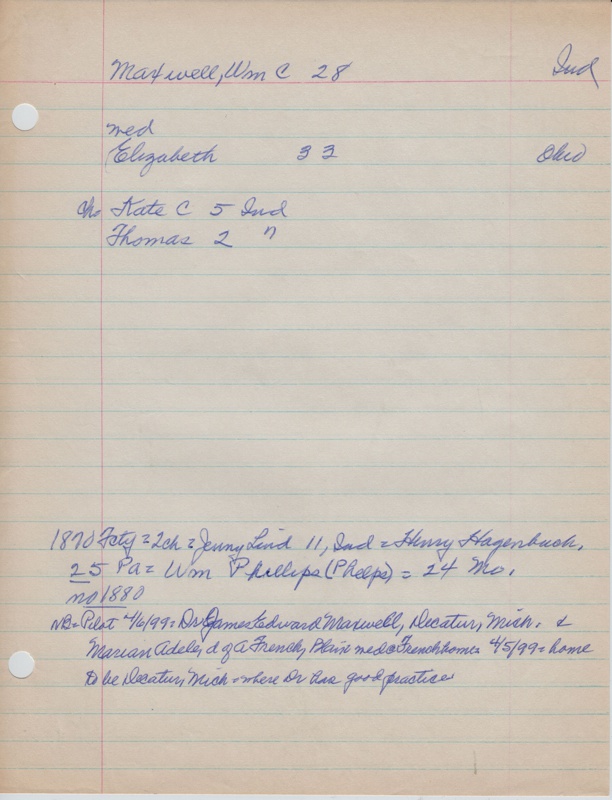 Maxwell, Wm C 28 Ind
med
Elizabeth 33 Ohio
Ch Kate C 5 Ind
Thomas 2 "
1870 Fcty = 2ch = Jenny Lind 11, Ind = Henry Hagenbuch,
25 Pa = Wm Phillips (Phelps) = 24 Mo.
no 1880
NB = Pilot 4/6/99 = Dr James Edward Maxwell, Decatur, Mich. &
Marian Adele, d of A French, Blaine med @ French home 4/5/99 = home
to be Decatur, Mich - where Dr has good practice